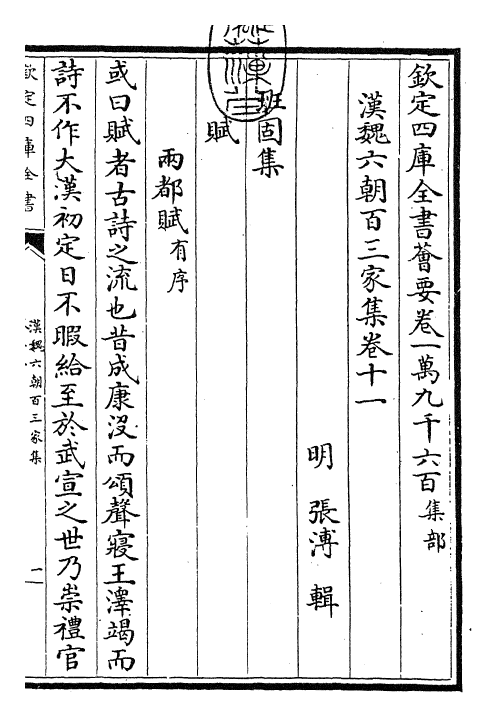 欽定四庫全書薈要卷一萬九千六百集部
漢魏六朝百三家集卷十一
明 張溥 輯
班固集
賦
兩都賦有序
或曰賦者古詩之流也昔成康沒而頌聲寢王澤竭而
詩不作大漢初定日不暇給至於武宣之世乃崇禮官
欽定四庫全書
漢魏六朝百三家集
一